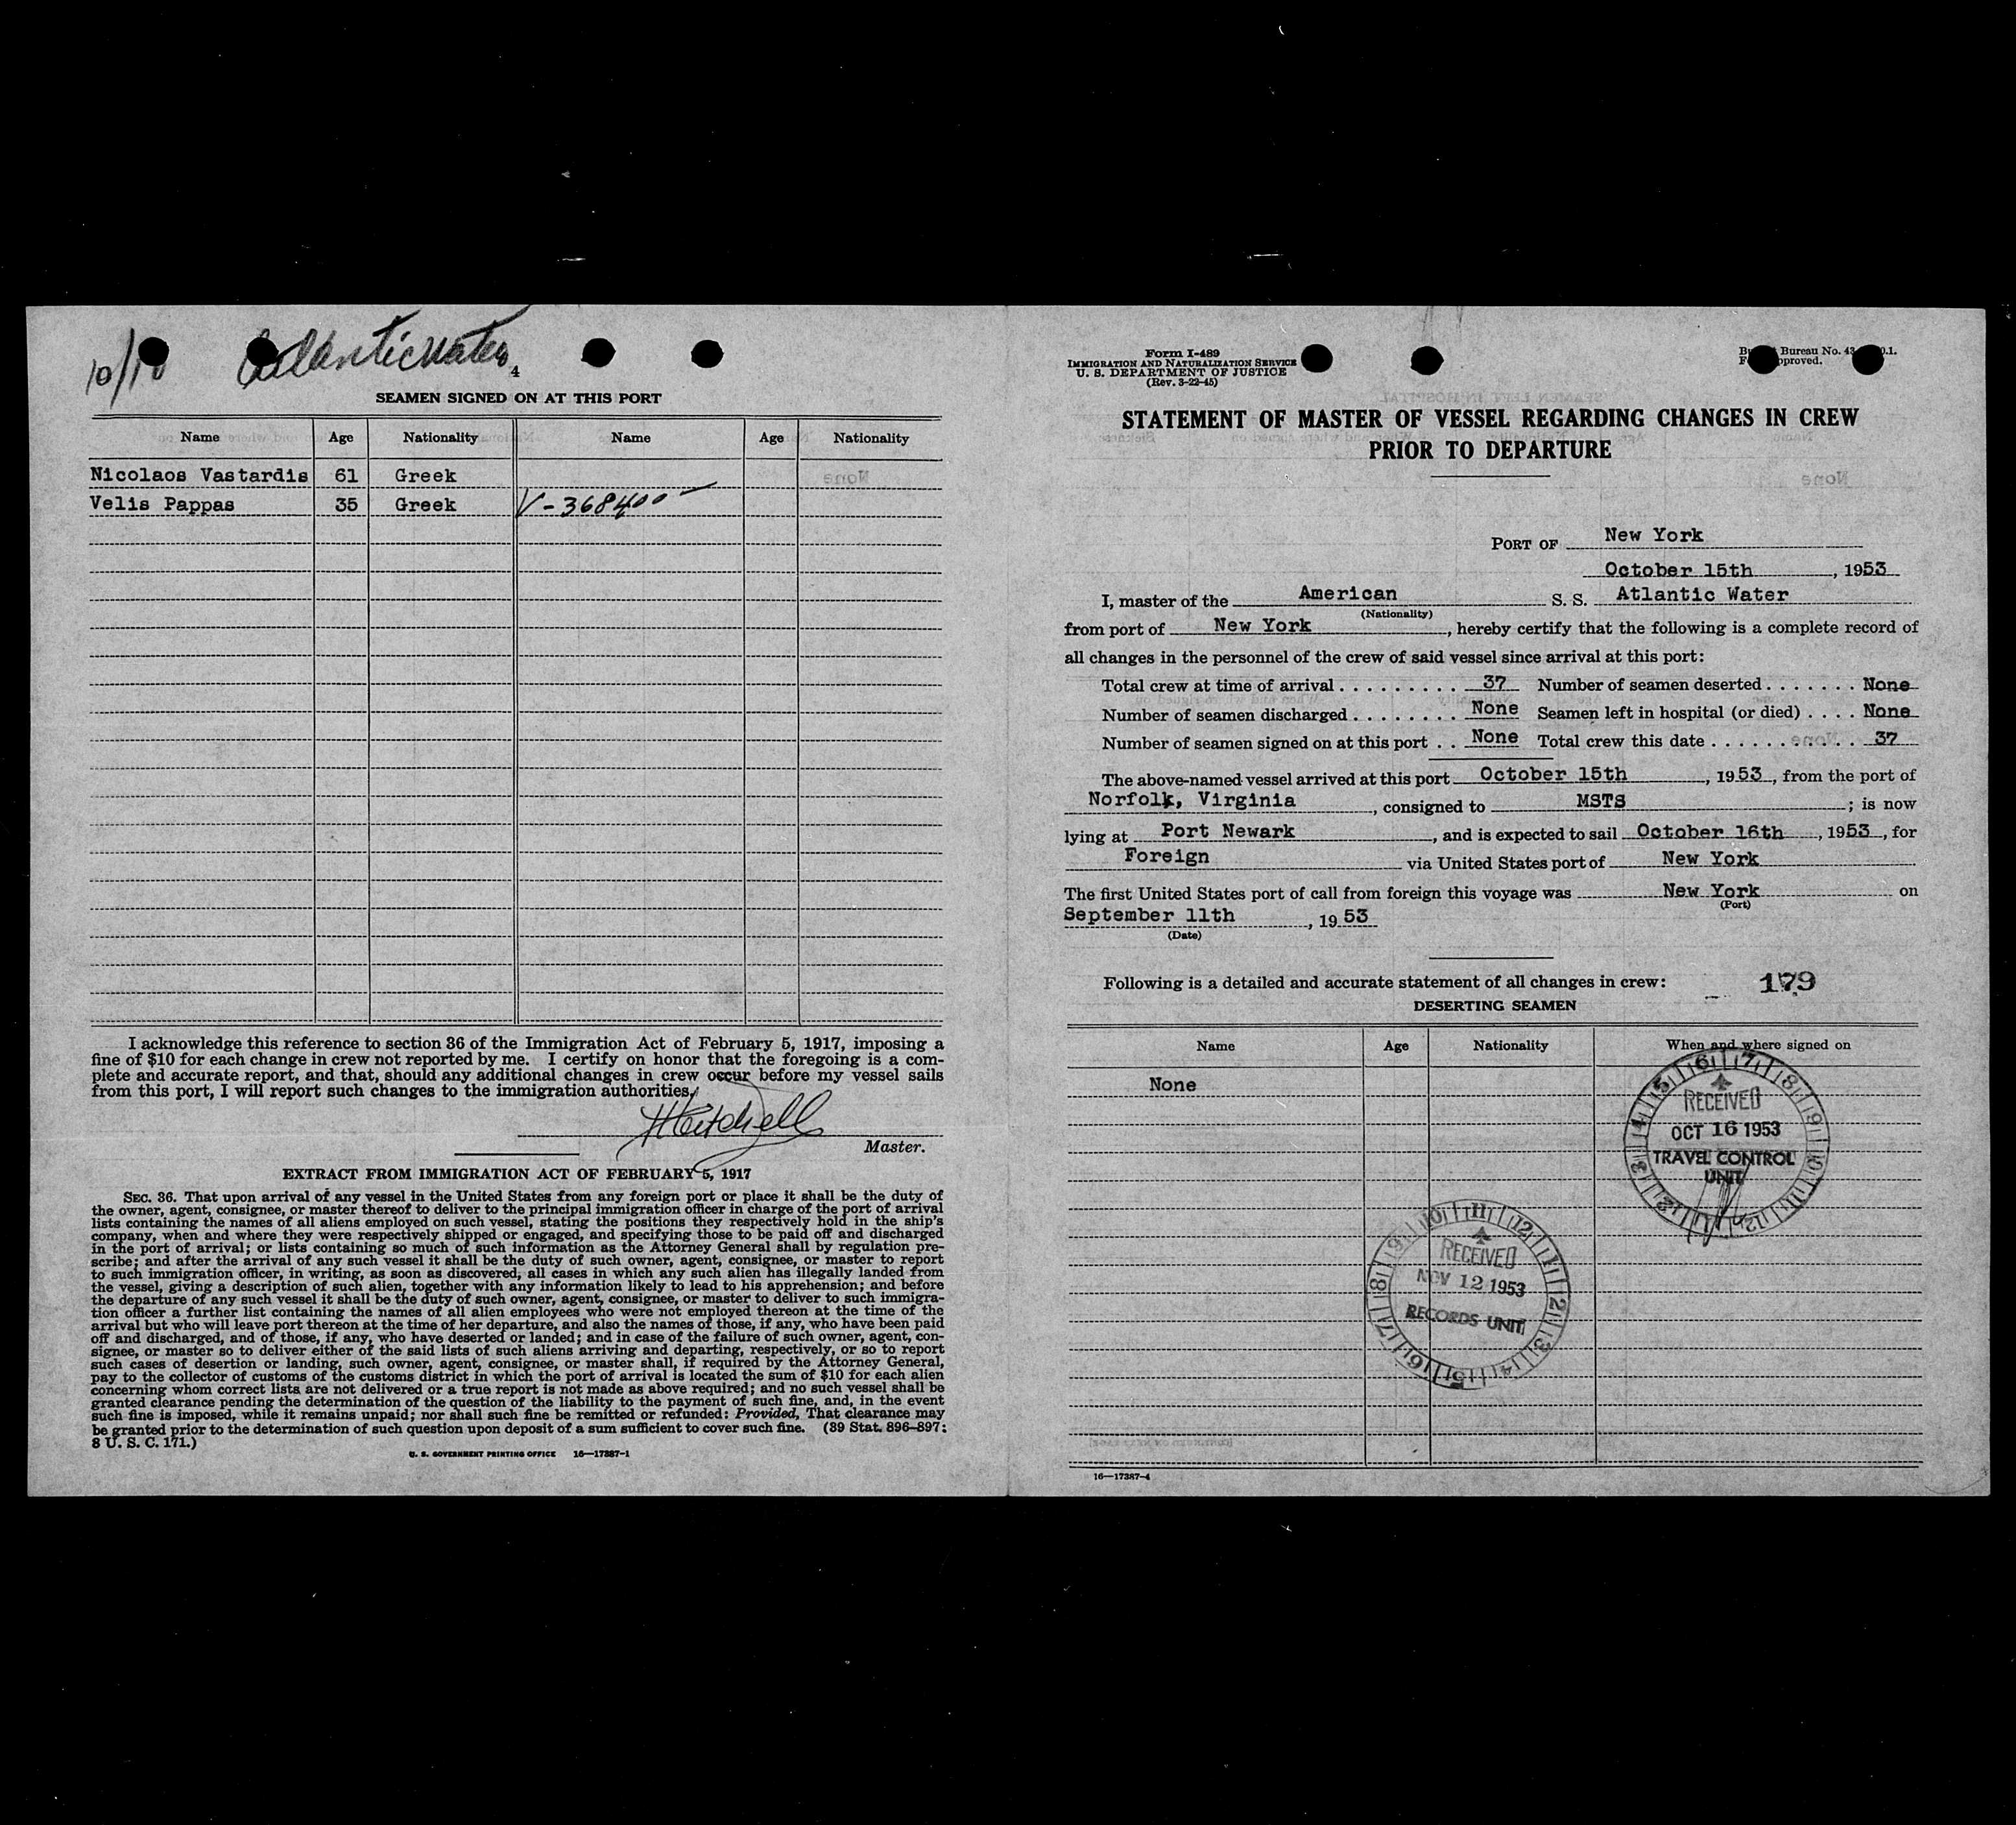 10/10 Atlantic Water
4
SEAMEN SIGNED ON AT THIS PORT
Name Age Nationality Name Age Nationality
Nicolaos Vastardis 61 Greek
Velis Pappas 35 Greek V-368400
I acknowledge this reference to section 36 of the Immigration Act of February 5, 1917, imposing a
fine of $10 for each change in crew not reported by me. I certify on honor that the foregoing is a com-
plete and accurate report, and that, should any additional changes in crew occur before my vessel sails
from this port, I will report such changes to the immigration authorities.
Master.
EXTRACT FROM IMMIGRATION ACT OF FEBRUARY 5, 1917
SEC. 36. That upon arrival of any vessel in the United States from any foreign port or place it shall be the duty of
the owner, agent, consignee, or master thereof to deliver to the principal immigration officer in charge of the port of arrival
lists containing the names of all aliens employed on such vessel, stating the positions they respectively hold in the ship's
company, when and where they were respectively shipped or engaged, and specifying those to be paid off and discharged
in the port of arrival; or lists containing so much of such information as the Attorney General shall by regulation pre-
scribe; and after the arrival of any such vessel it shall be the duty of such owner, agent, consignee, or master to report
to such immigration officer, in writing, as soon as discovered, all cases in which any such alien has illegally landed from
the vessel, giving a description of such alien, together with any information likely to lead to his apprehension; and before
the departure of any such vessel it shall be the duty of such owner, agent, consignee, or master to deliver to such immigra-
tion officer a further list containing the names of all alien employees who were not employed thereon at the time of the
arrival but who will leave port thereon at the time of her departure, and also the names of those, if any, who have been paid
off and discharged, and of those, if any, who have deserted or landed; and in case of the failure of such owner, agent, con-
signee, or master so to deliver either of the said lists of such aliens arriving and departing, respectively, or so to report
such cases of desertion or landing, such owner, agent, consignee, or master shall, if required by the Attorney General,
pay to the collector of customs of the customs district in which the port of arrival is located the sum of $10 for each alien
concerning whom correct lists are not delivered or a true report is not made as above required; and no such vessel shall be
granted clearance pending the determination of the question of the liability to the payment of such fine, and, in the event
such fine is imposed, while it remains unpaid; nor shall such fine be remitted or refunded: Provided, That clearance may
be granted prior to the determination of such question upon deposit of a sum sufficient to cover such fine. (39 Stat. 896-897;
8 U. S. C. 171.)
U. S. GOVERNMENT PRINTING OFFICE 16—17387-1
Form I-489
IMMIGRATION AND NATURALIZATION SERVICE
U. S. DEPARTMENT OF JUSTICE
(Rev. 3-22-45)
Bureau No. 43
STATEMENT OF MASTER OF VESSEL REGARDING CHANGES IN CREW
PRIOR TO DEPARTURE
PORT OF New York
October 15th, 1953
I, master of the American S. S. Atlantic Water
(Nationality)
from port of New York, hereby certify that the following is a complete record of
all changes in the personnel of the crew of said vessel since arrival at this port:
Total crew at time of arrival . . . . . . . . . . 37 Number of seamen deserted . . . . . . . None
Number of seamen discharged . . . . . . . . None Seamen left in hospital (or died) . . . . None
Number of seamen signed on at this port . . None Total crew this date . . . . . . . . . . . . 37
The above-named vessel arrived at this port October 15th, 1953, from the port of
Norfolk, Virginia, consigned to MSTS; is now
lying at Port Newark, and is expected to sail October 16th, 1953, for
Foreign via United States port of New York
The first United States port of call from foreign this voyage was New York on
(Port)
September 11th, 1953
(Date)
Following is a detailed and accurate statement of all changes in crew: 179
DESERTING SEAMEN
Name Age Nationality When and where signed on
None
RECEIVED
OCT 16 1953
TRAVEL CONTROL
UNIT
RECEIVED
NOV 12 1953
RECORDS UNIT
16—17387-4